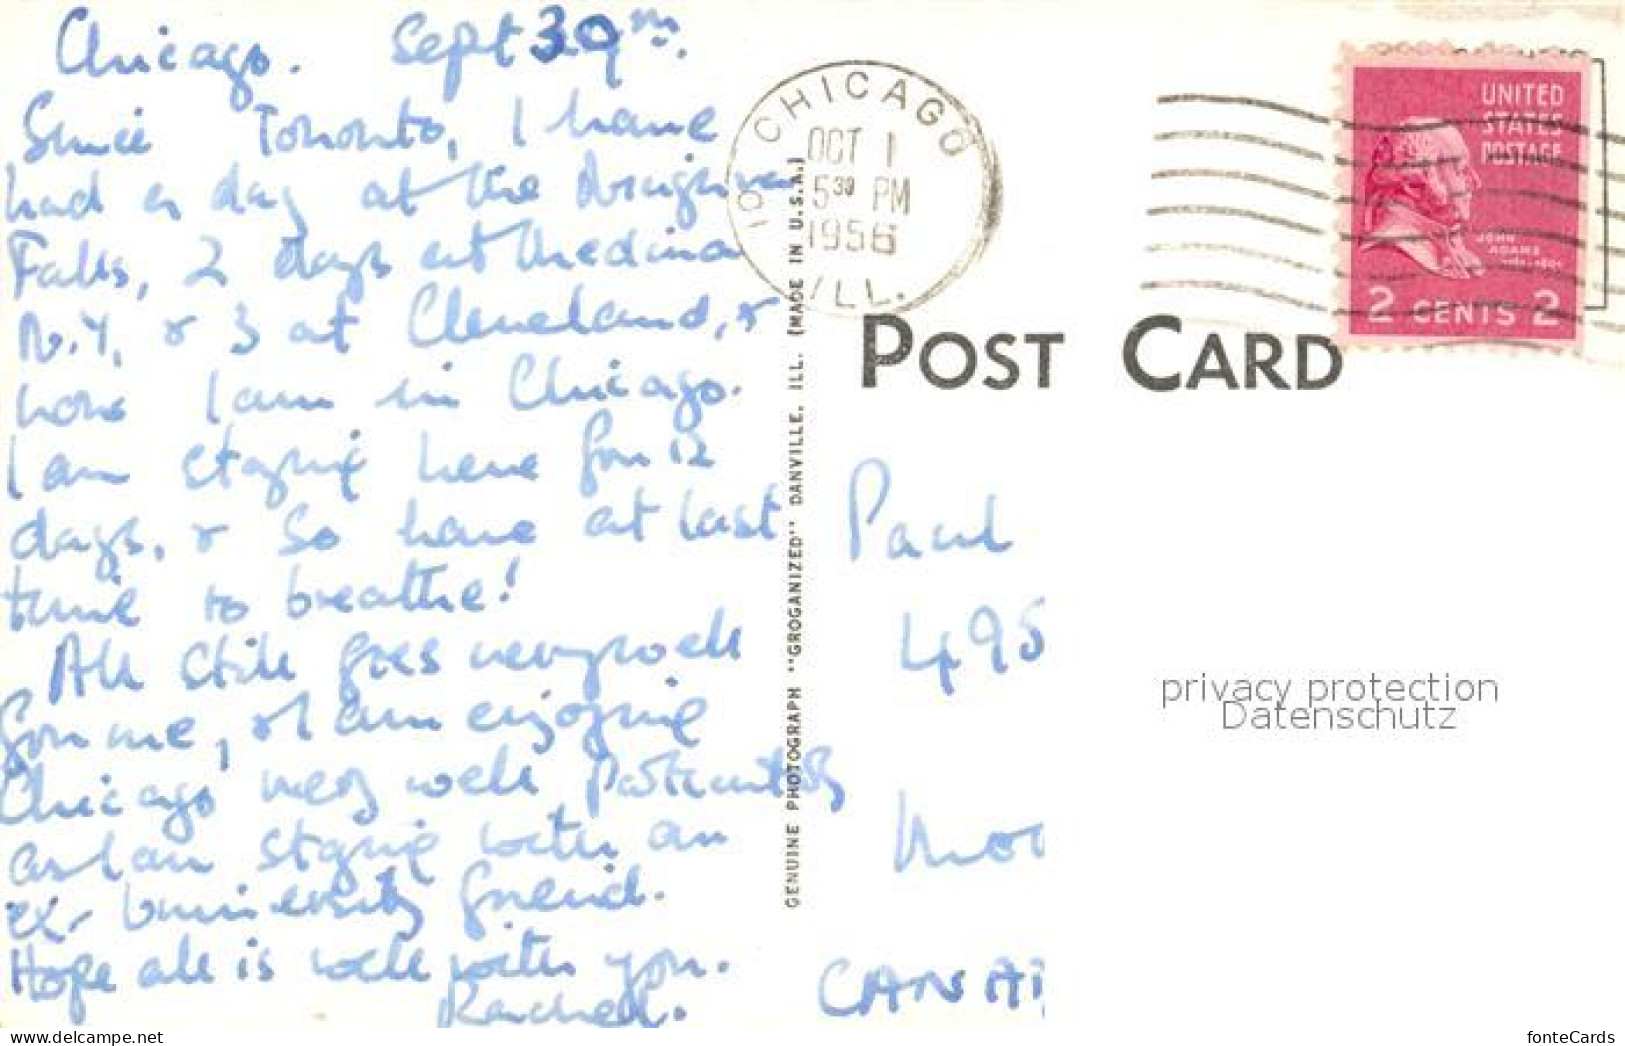 Chicago. Sept 30th.
Since Toronto, I have
had a day at the Niagara
Falls, 2 days at Medina
N.Y, & 3 at Cleveland, &
now I am in Chicago.
I am staying here for 12
days, & so have at last
time to breathe!
All still goes very well
for me, & I am enjoying
Chicago very well particularly
as I am staying with an
ex-University friend.
Hope all is well with you.
Rachel.
GENUINE PHOTOGRAPH "GROGANIZED" DANVILLE, ILL. (MADE IN U.S.A.)
CHICAGO
OCT 1
5 30 PM
1956
ILL.
UNITED
STATES
POSTAGE
JOHN
ADAMS
2 CENTS 2
POST CARD
Paul
495
CANA
privacy protection
Datenschutz
www.delcampe.net
fonteCards